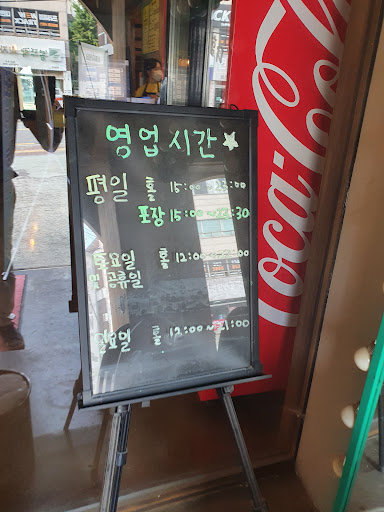 영업시간
평일 홀 15:00 ~ 23:00
포장 15:00 ~ 22:30
토요일 홀 12:00 ~
및 공휴일
일요일 홀 12:00 ~ 21:00
Coca-Cola